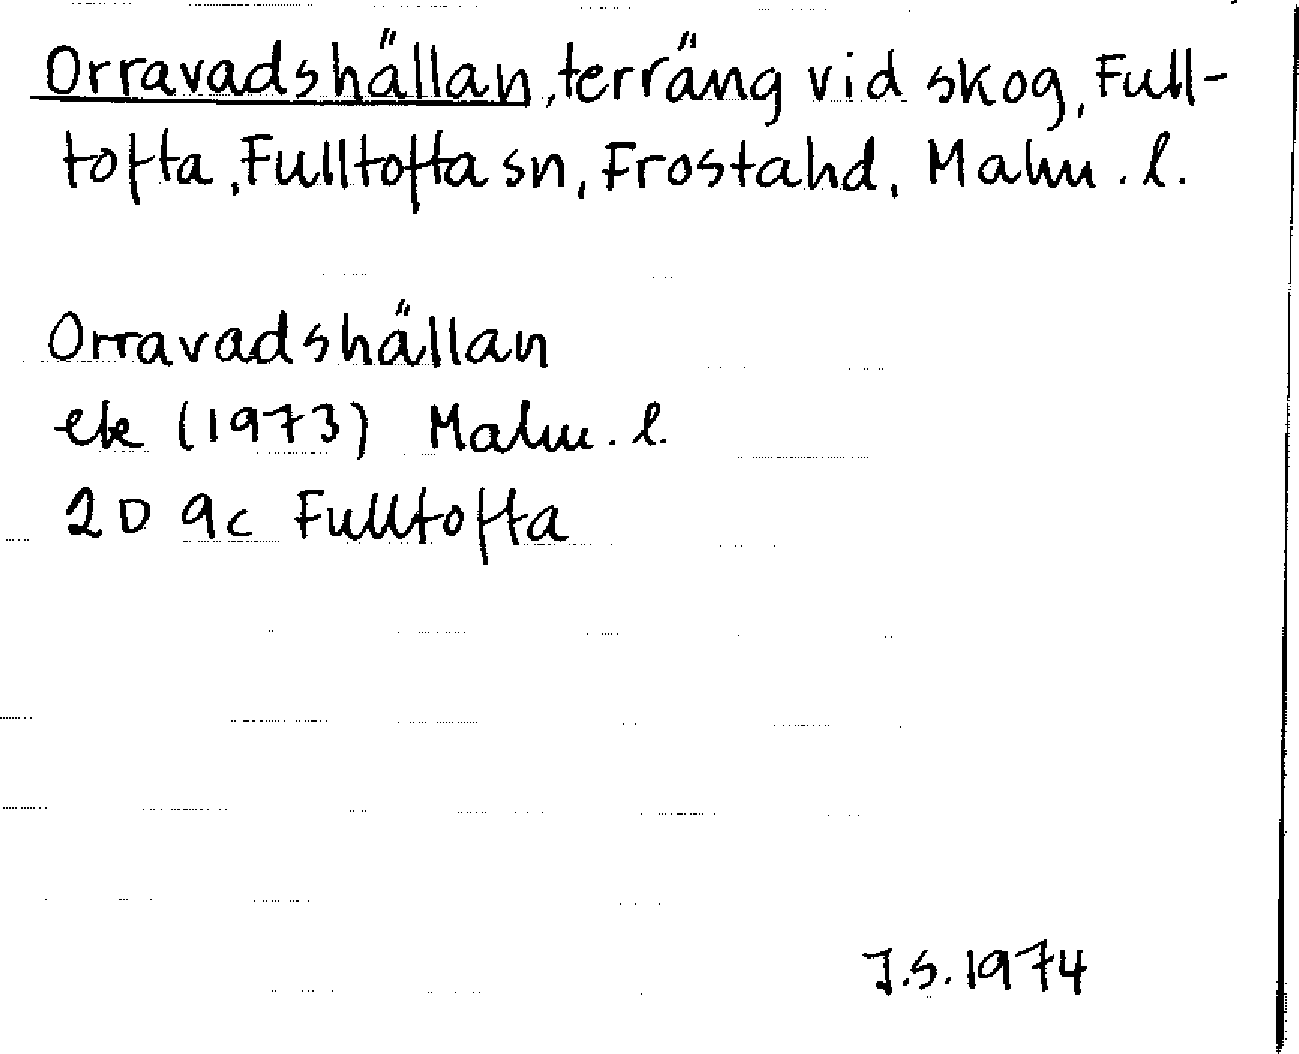 Orravadshällan, terräng vid skog, Full-
tofta, Fulltofta sn, Frosta hd, Malm. l.
Orravadshällan
ek (1973) Malm. l.
2D 9c Fulltofta
J.S. 1974